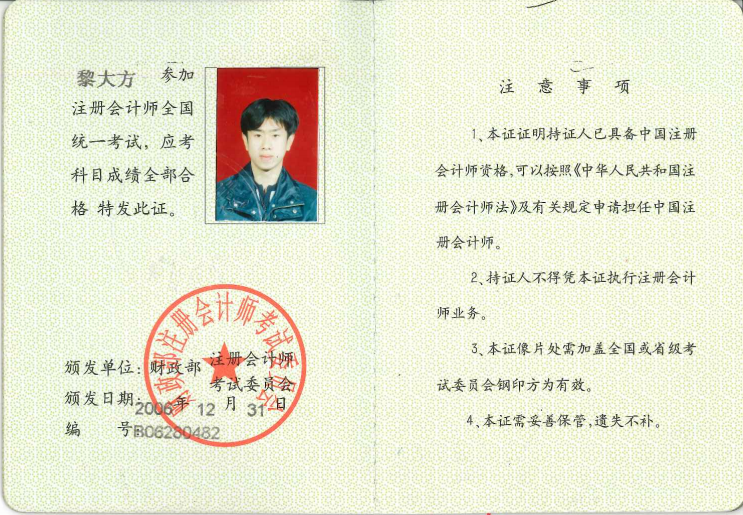 黎大方 参加
注册会计师全国
统一考试，应考
科目成绩全部合
格 特发此证。
财政部注册会计师考试委员会
颁发单位：财政部 注册会计师
考试委员会
颁发日期：2006年 12 月 31 日
编 号：B06280482
注 意 事 项
1、本证证明持证人已具备中国注册
会计师资格，可以按照《中华人民共和国注
册会计师法》及有关规定申请担任中国注
册会计师。
2、持证人不得凭本证执行注册会计
师业务。
3、本证像片处需加盖全国或省级考
试委员会钢印方为有效。
4、本证需妥善保管，遗失不补。